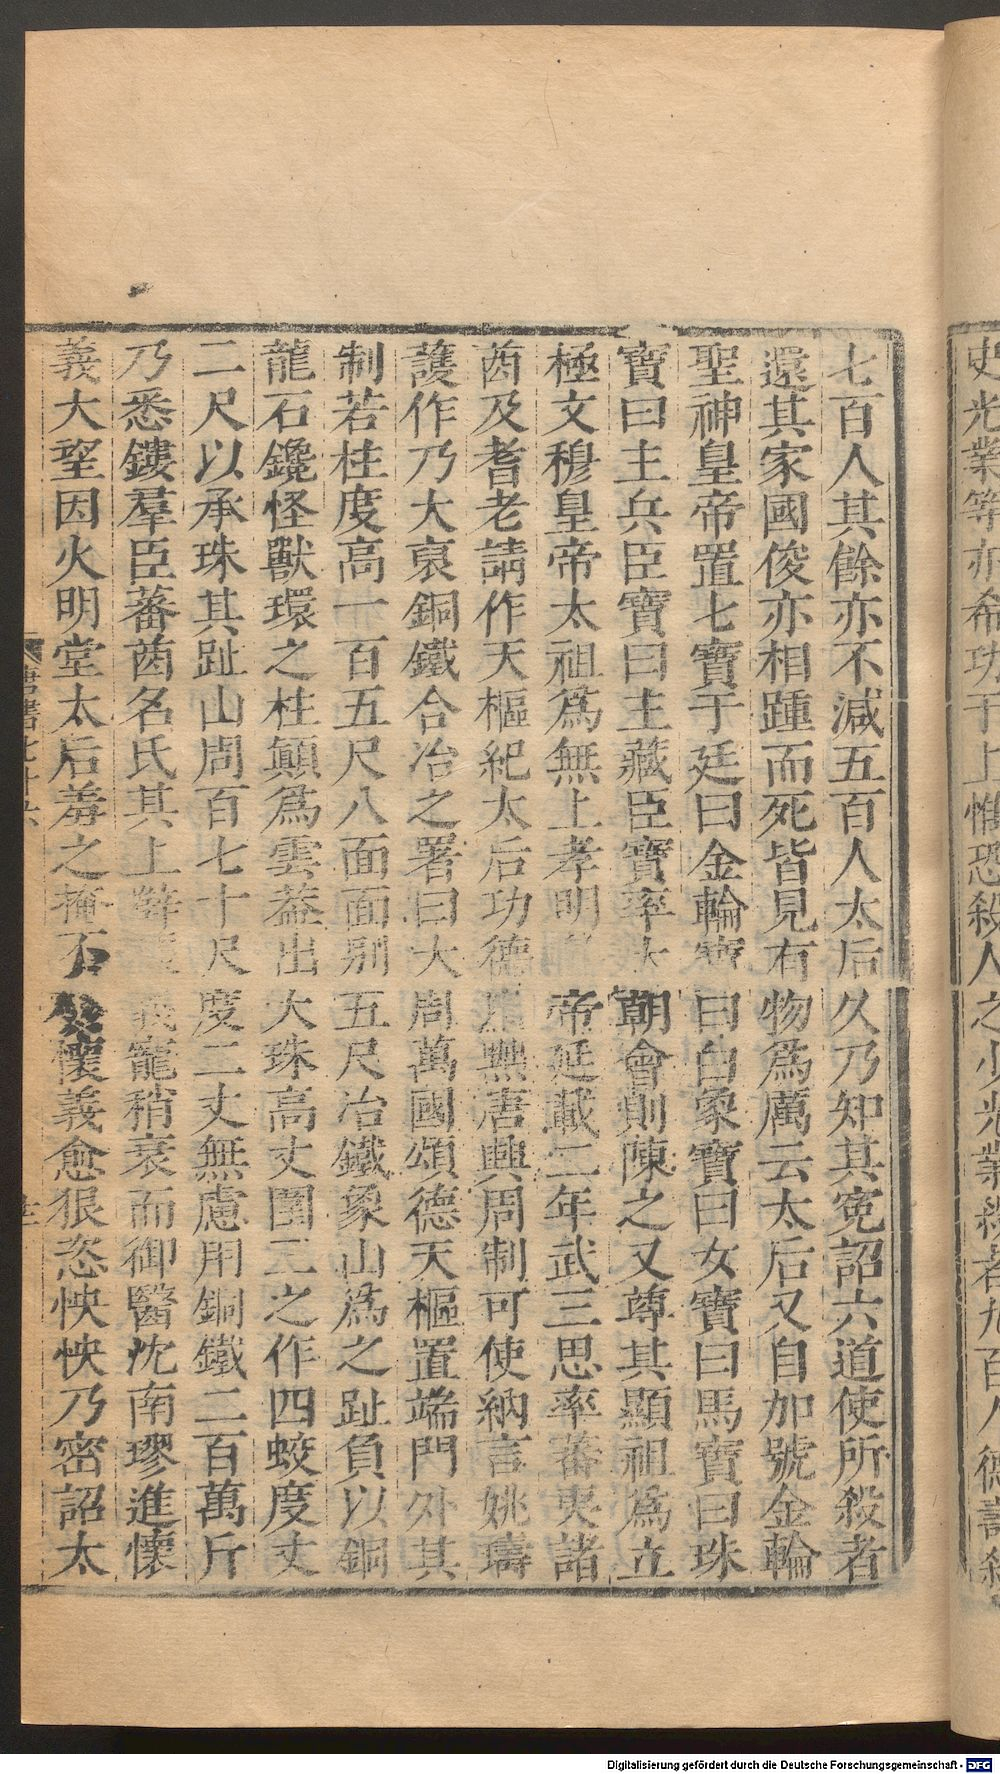 史光業等亦希功于上惟恐殺人之少光業殺者九百人德壽殺
七百人其餘亦不減五百人太后久乃知其冤詔六道使所殺者
還其家國俊亦相踵而死皆見有物為厲云太后又自加號金輪
聖神皇帝置七寶于廷曰金輪寶曰白象寶曰女寶曰馬寶曰珠
寶曰主兵臣寶曰主藏臣寶率大朝會則陳之又尊其顯祖為立
極文穆皇帝太祖為無上孝明 帝延載二年武三思率蕃夷諸
酋及耆老請作天樞紀太后功德 黜唐興周制可使納言姚璹
護作乃大裒銅鐵合冶之署曰大周萬國頌德天樞置端門外其
制若柱度高一百五尺八面面別五尺冶鐵象山為之趾負以銅
龍石鑱怪獸環之柱顛為雲蓋出大珠高丈圍三之作四蛟度丈
二尺以承珠其趾山周百七十尺度二丈無慮用銅鐵二百萬斤
乃悉鏤羣臣蕃酋名氏其上薛 義寵稍衰而御醫沈南璆進懷
義大望因火明堂太后羞之掩不 懷義愈狠恣怏怏乃密詔太
唐書七十六
Digitalisierung gefördert durch die Deutsche Forschungsgemeinschaft - DFG